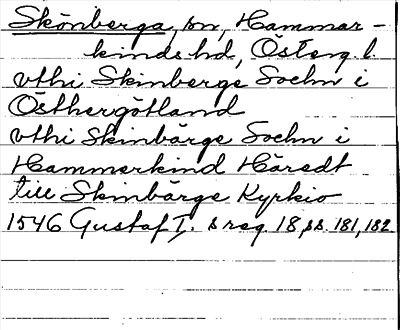 Skönberga, sn, Hammar-
kinds hd, Österg. l.
vthi Skinberge Sochn i
Östhergötland
vthi Skinbärge Sochn i
Hammerkind Häredt
till Skinbärge Kyrkio
1546 Gustaf I:s reg. 18, ss. 181, 182